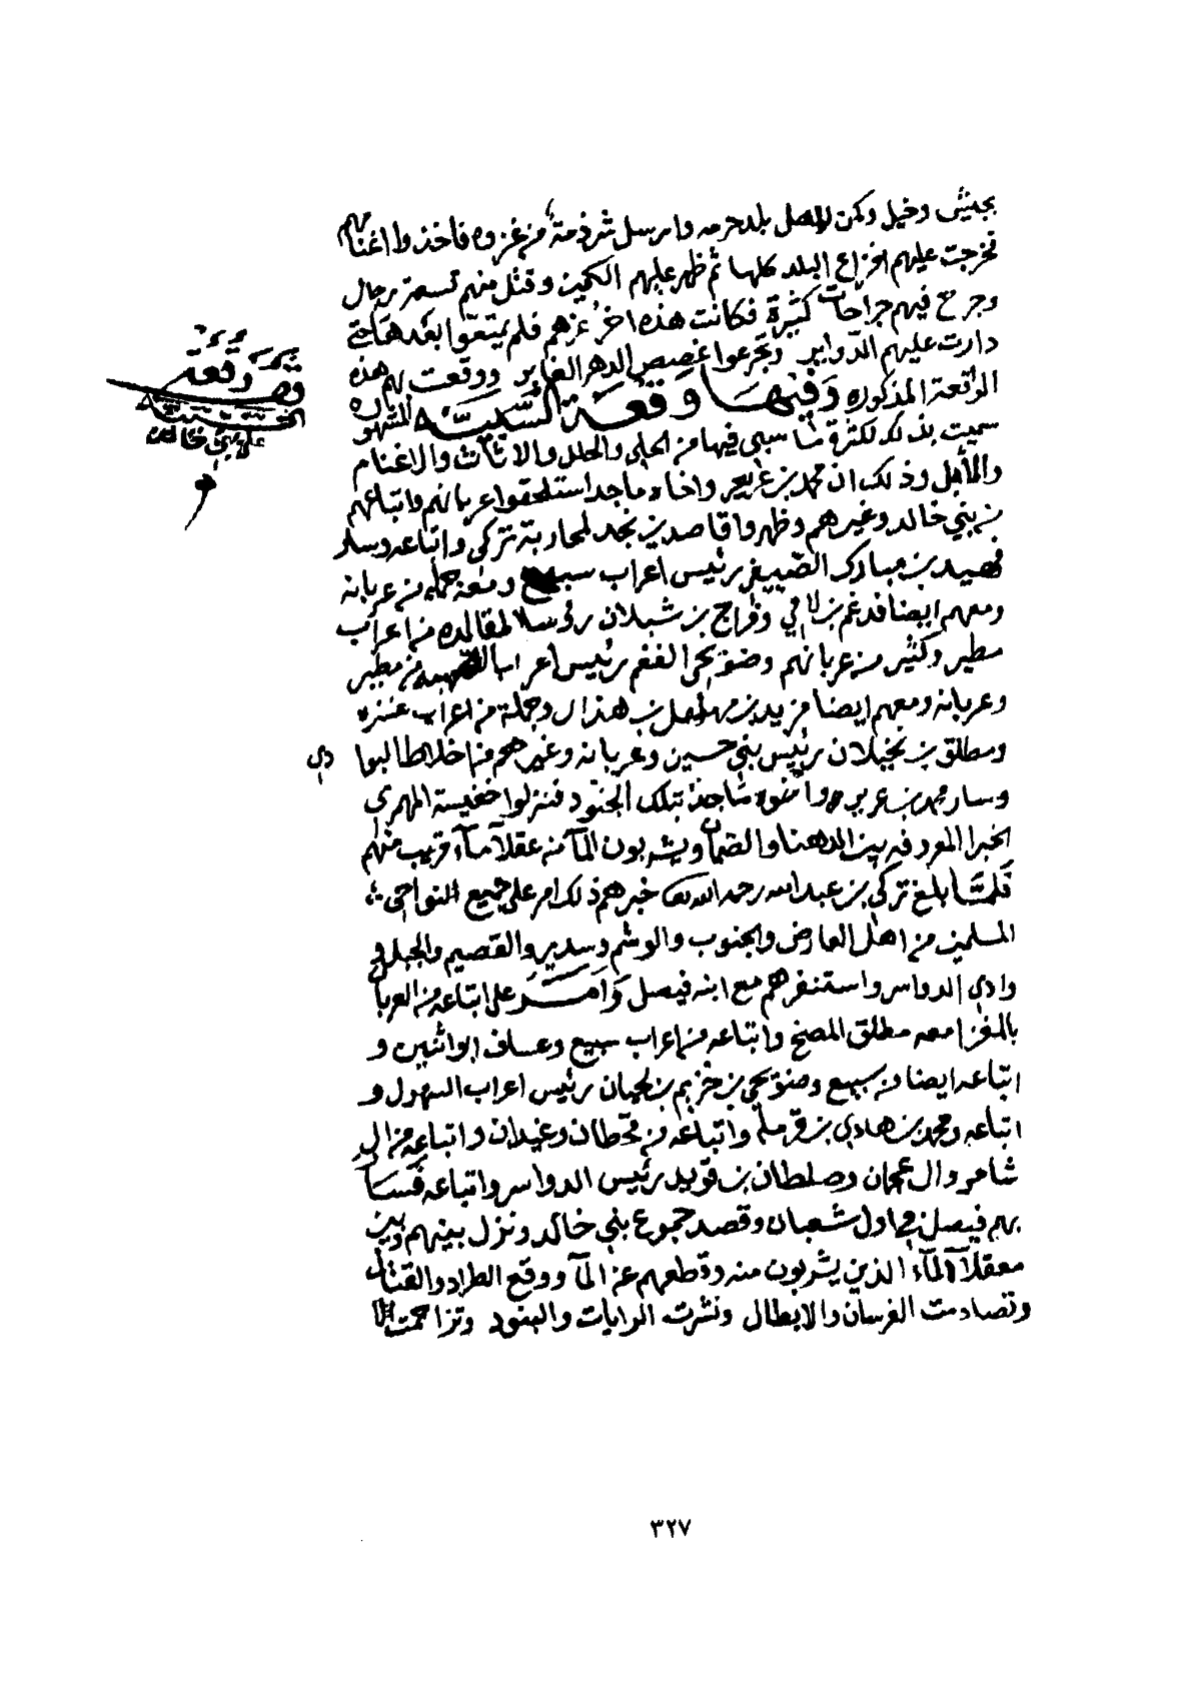 بجيش وخيل وكمن لاهل بلد حرمه وارسل شرذمة من غزوه فاخذوا اغنامهم
فخرجت عليهم افزاع البلد كلها ثم ظهر عليهم الكمين وقتل منهم تسعة رجال
وجرح فيهم جراحات كثيرة فكانت هذه اخر عزهم فلم يمتعوا بعدها حتى
دارت عليهم الدواير وتجرعوا غصص الدهر الغابر ووقعت بهم هذه
الوقعة المذكوره وفيها وقعة السبيه المشهوره
سميت بذلك لكثرة ما سبي فيها من الحلي والحلل والاثاث والاغنام
والأبل وذلك ان محمد بن عريعر واخاه ماجد استلحقوا عربانهم واتباعهم
من بني خالد وغيرهم وظهروا قاصدين نجد لمحاربة تركي واتباعه وسار
فهيد بن مبارك الصييفي رئيس اعراب سبيع ومعه حمله من عربانه
ومعهم ايضا فدغم بن لامي وفراج بن شبلان رؤسا لمقالده من اعراب
مطير وكثير من عربانهم وضويحي الفغم رئيس اعراب الصهبه من مطير
وعربانه ومعهم ايضا مزيد بن مهلهل بن هذال وجملة من اعراب عنزه
ومطلق بن نخيلان رئيس بني حسين وعربانه وغيرهم من اخلاط البوادي
وسار محمد بن عريعر واخوه ماجد بتلك الجنود فنزلوا خفيسة المهمري
الخبرا المعروفه بين الدهنا والصمان ويشربون المآ من عقلآ مآء قريب منهم
فلمّا بلغ تركي بن عبدالله رحمه الله تعا خبرهم ذلك امر على جميع النواحي
المسلمين من اهل العارض والجنوب والوشم وسدير والقصيم والجبل و
وادي الدواسر واستنفرهم مع ابنه فيصل وامر على اتباعه من العربا
بالمغزا معه مطلق المصخ واتباعه من اعراب سبيع وعساف ابو اثنين و
اتباعه ايضا من سبيع وضويحي بن خزيم بن لحيان رئيس اعراب السهول و
اتباعه ومحمد بن هادي بن قرملة واتباعه من قحطان وغيدان واتباعه من ال
شامر وال عجمان وصلطان بن قويد رئيس الدواسر واتباعه فسار
بهم فيصل في اول شعبان وقصد جموع بني خالد ونزل بينهم وبين
معقلآ المآء الذين يشربون منه وقطعهم عن المآ ووقع الطراد والقتال
وتصادمت الفرسان والابطال ونشرت الرايات والبنود وتزاحمت
وقعة
على بني خالد
٣٢٧